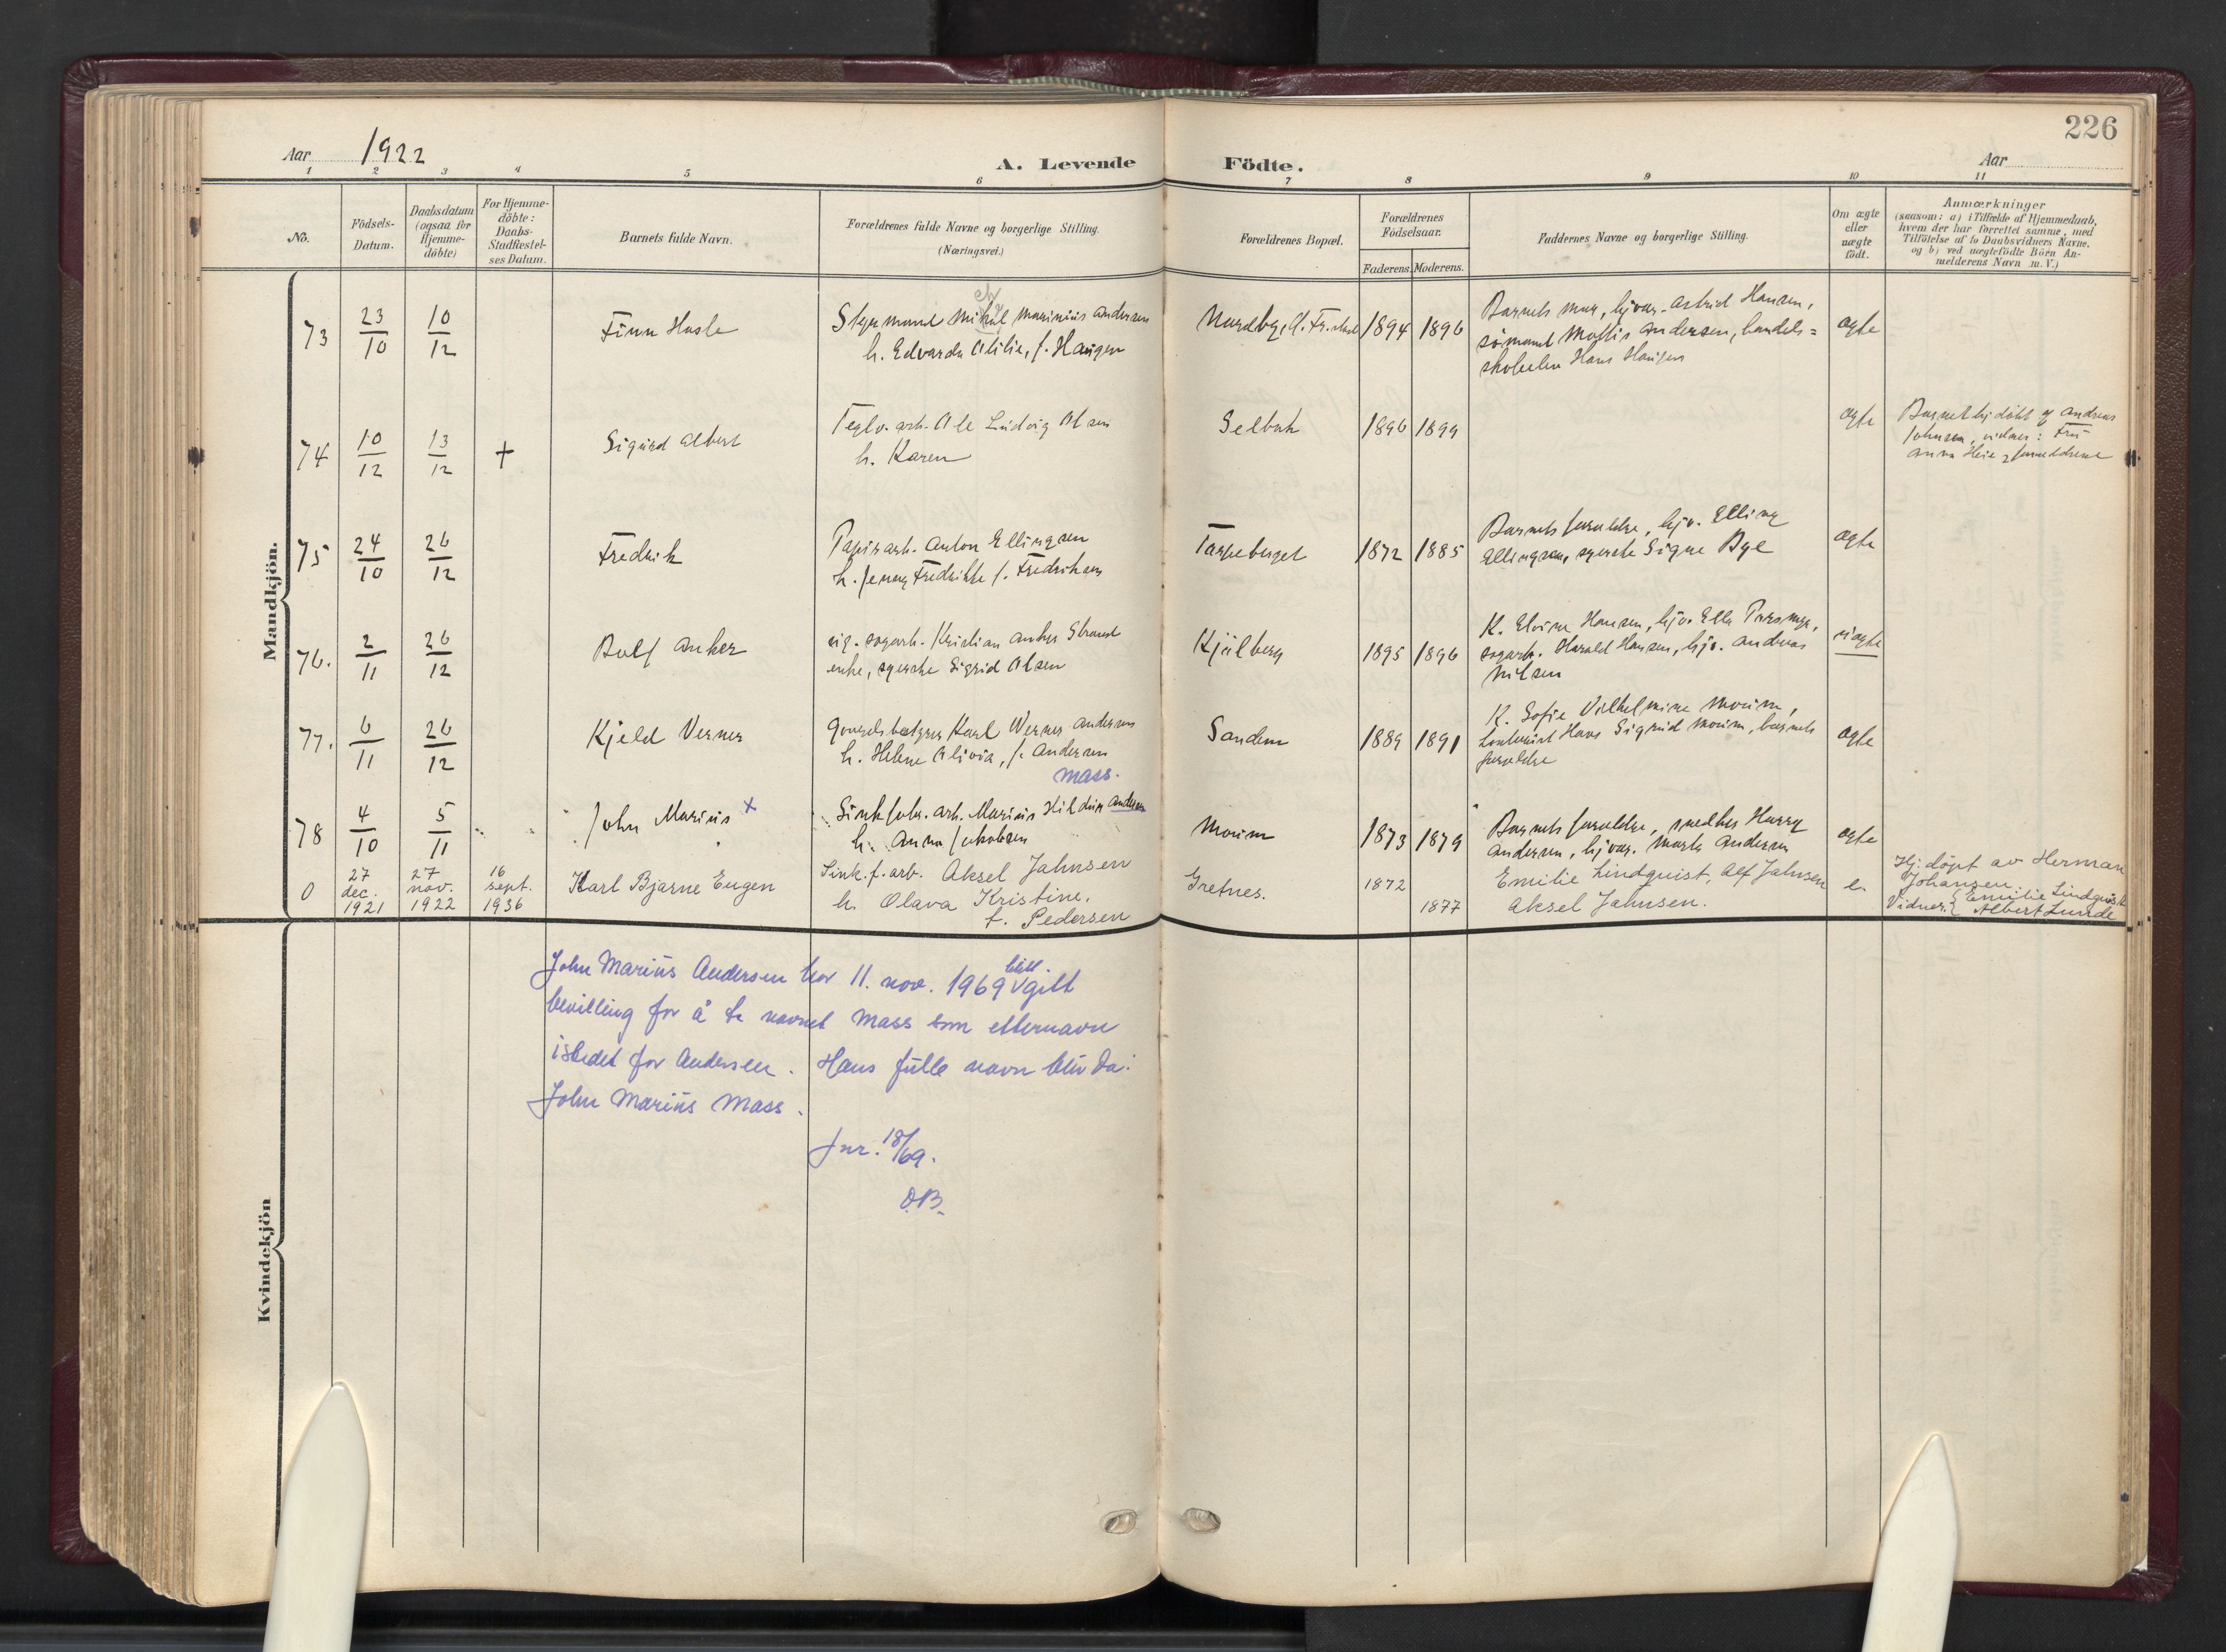 226
Aar 1922
A. Levende Födte.
Aar
1 2 3 4 5 6 7 8 9 10 11
No.
Födsels-
Datum.
Daabsdatum
(ogsaa for
Hjemme-
döbte)
For Hjemme-
döbte:
Daabs-
Stadfæstel-
ses Datum.
Barnets fulde Navn.
Forældrenes fulde Navne og borgerlige Stilling.
(Næringsvei.)
Forældrenes Bopæl.
Forældrenes
Födselsaar.
Faderens. Moderens.
Faddernes Navne og borgerlige Stilling.
Om ægte
eller
uægte
födt.
Anmærkninger
(saasom: a) i Tilfælde af Hjemmedaab,
hvem der har forrettet samme, med
Tilföielse af to Daabsvidners Navne,
og b) ved uægtefödte Börn An-
melderens Navn m. V.)
Mandkjön.
73
23/10
10/12
Finn Hasle
Styrmand Mikal Marinius Andersen
h. Edvarda Otilie, f. Haugen
1894 1896
Barnets mor, hjvar. Astrid Hansen,
sömand Andersen, handels=
Hans Haugen
ægte
74
10/12
13/12
+
Sigurd Albert
Teglv. arb. Ole Ludvig Olsen
h. Karen
Selbak
1896 1899
ægte
Barnet hj.döbt af Andreas
Johnsen, vidner: Fru
Anna Heie & forældrene
75
24/10
26/12
Fredrik
Papirarb. Anton Ellingsen
h. Jenny Fredrikke f. Fredriksen
Torpeberget
1872 1885
Barnets forældre, hjv. Elling
Ellingsen, syerske Signe Bye
ægte
76.
2/11
26/12
Rolf Anker
sig. sagarb. Kristian Anker Strand
enke, syerske Sigrid Olsen
Kjölberg
1895 1896
K. Elvine Hansen, hjv. Ella
sagarb. Harald Hansen, hjv. Andreas
Nilsen
uægte
77.
6/11
26/12
Kjeld Verner
Gaardsbestyrer Karl Werner Andersen
h. Helene Olivia, f. Andersen
Sandem
1889 1891
K. Sofie Vilhelmine Moum,
kontorist Hans Sigurd Moum, barnets
forældre
ægte
Mass.
78
4/10
5/11
John Marius x
Sinkfabr. arb. Marius Hildin Andersen
h. Anna Jakobsen
Moum
1873 1879
Barnets forældre, snedker Harry
Andersen, hjvar. Marta Andersen
ægte
0
27 dec. 1921
27 nov. 1922
16 sept. 1936
Karl Bjarne Eugen
Sink.f. arb. Aksel Jahnsen
h. Olava Kristine,
f. Pedersen
Gretnes.
1872
1877
Emilie Lindquist, Alf Jahnsen
Aksel Jahnsen.
e.
Hj. döpt av Herman
Johansen.
Vidner: { Emilie Lindquist
Albert Lunde
Kvindekjön
John Marius Andersen har 11. nov. 1969 blitt gitt
bevilling for å ta navnet Mass som etternavn
istedet for Andersen. Hans fulle navn blir da:
John Marius Mass.
Jnr. 18/69.
O.B.